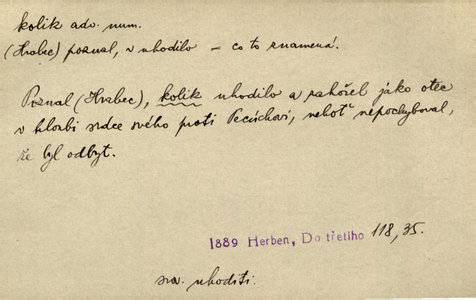 kolik adv. num.
(Hrabec) poznal, v uhodilo – co to znamená.
Poznal (Hrabec), kolik uhodilo a zahořel jako otec
v hloubi srdce svého proti Pecúchovi, neboť nepochyboval,
že byl odbyt.
1889 Herben, Do třetího 118, 35.
sv. uhoditi.